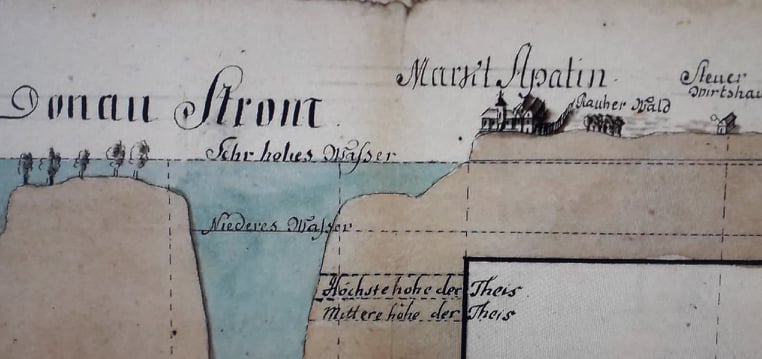 Donau Strom
Markt Apatin
Steuer
Wirtshau
Rauher Wald
Sehr hohes Wasser
Niederes Wasser
Höchste höhe der Theis
Mittere höhe der Theis